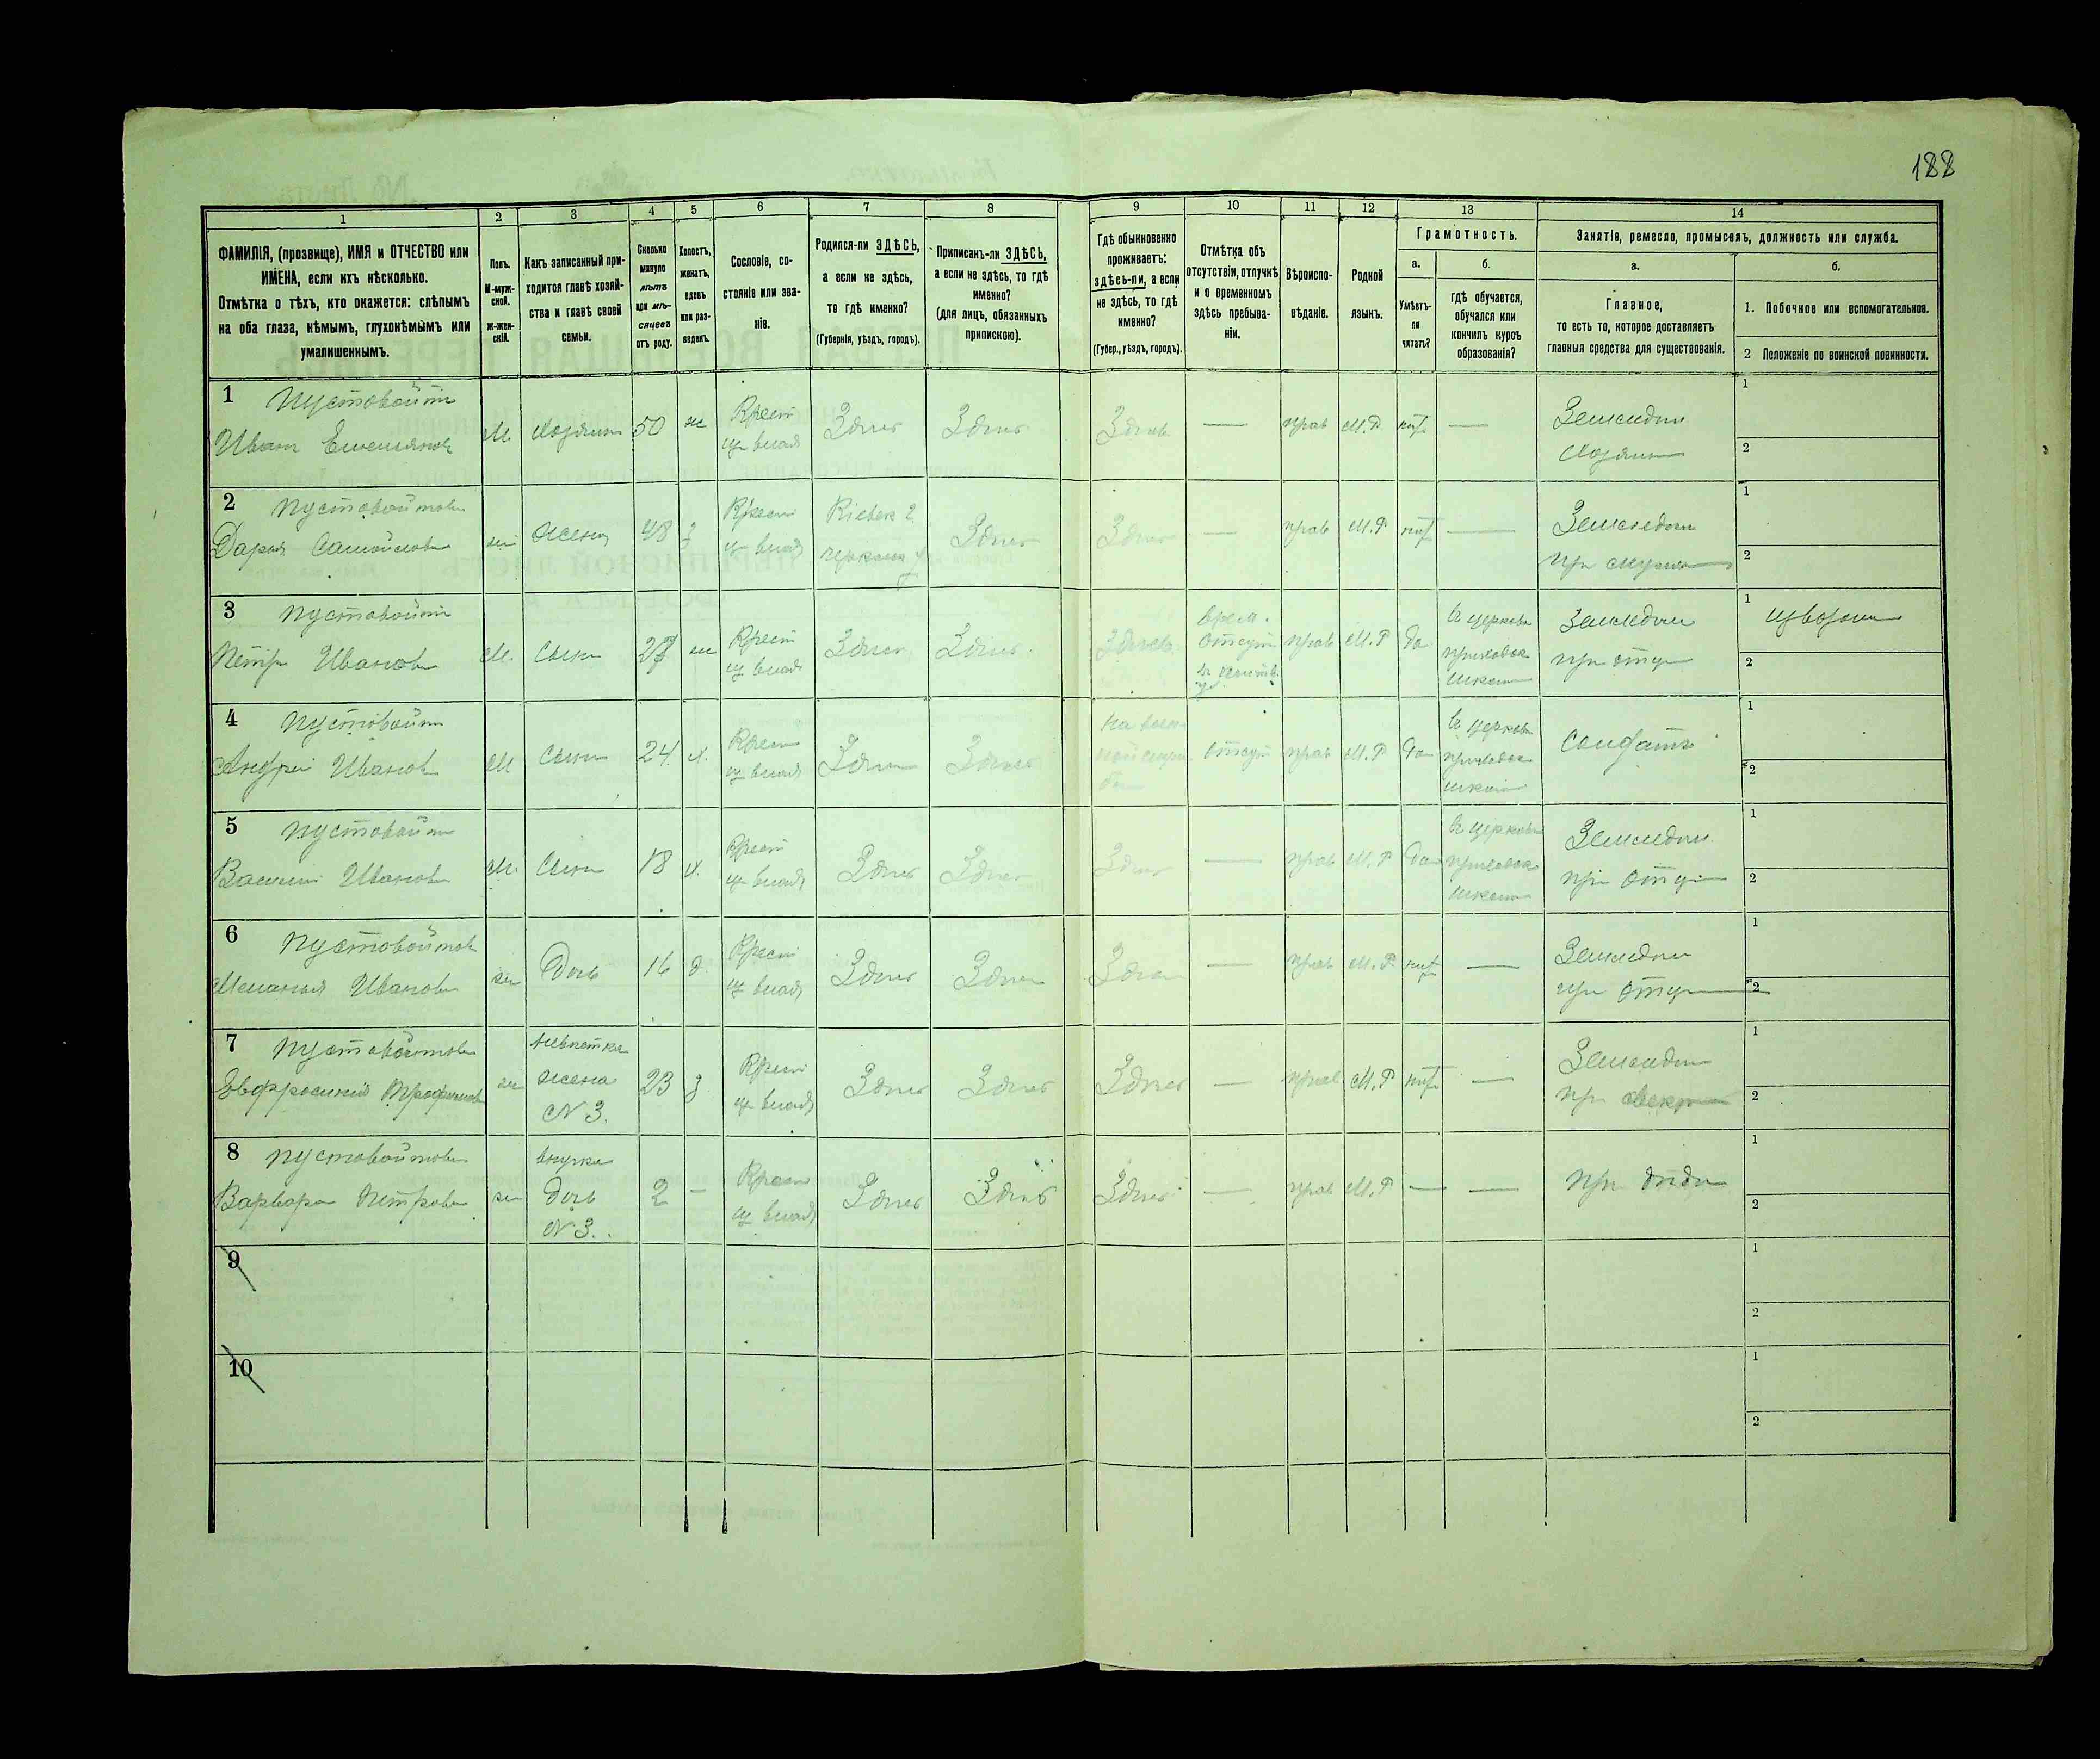 188
1
2
3
4
5
6
7
8
9
10
11
12
13
14
ФАМИЛІЯ, (прозвище), ИМЯ и ОТЧЕСТВО или
ИМЕНА, если ихъ нѣсколько.
Отмѣтка о тѣхъ, кто окажется: слѣпымъ
на оба глаза, нѣмымъ, глухонѣмымъ или
умалишеннымъ.
Полъ.
М-муж-
ской.
ж-жен-
скій.
Какъ записанный при-
ходится главѣ хозяй-
ства и главѣ своей
семьи.
Сколько
минуло
лѣтъ
или мѣ-
сяцевъ
отъ роду.
Холостъ,
женатъ,
вдовъ
или раз-
веденъ.
Сословіе, со-
стояніе или зва-
ніе.
Родился-ли ЗДѢСЬ,
а если не здѣсь,
то гдѣ именно?
(Губернія, уѣздъ, городъ).
Приписанъ-ли ЗДѢСЬ,
а если не здѣсь, то гдѣ
именно?
(для лицъ, обязанныхъ
припискою).
Гдѣ обыкновенно
проживаетъ:
здѣсь-ли, а если
не здѣсь, то гдѣ
именно?
(Губер., уѣздъ, городъ).
Отмѣтка объ
отсутствіи, отлучкѣ
и о временномъ
здѣсь пребыва-
ніи.
Вѣроиспо-
вѣданіе.
Родной
языкъ.
Грамотность.
а.
Умѣетъ-
ли
читать?
б.
гдѣ обучается,
обучался или
кончилъ курсъ
образованія?
Занятіе, ремесло, промыселъ, должность или служба.
а.
Главное,
то есть то, которое доставляетъ
главныя средства для существованія.
б.
1. Побочное или вспомогательное.
2 Положеніе по воинской повинности.
1 Пустовойтъ
Иванъ Емельяновъ
М. Хозяинъ 50 ж Крест
изъ влад Здѣсь Здѣсь Здѣсь — прав М.Р нѣт — Земледѣл
Хозяинъ
1
2
2 Пустовойтова
Дарья Самойлова
жена 48 з Крест
изъ влад
Кіевск г.
черкасск у Здѣсь Здѣсь — прав М.Р нѣт — Земледѣл
при мужѣ
1
2
3 Пустовойтъ
Петръ Ивановъ
М. Сынъ 27 ж Крест
изъ влад Здѣсь Здѣсь Здѣсь
врем.
Отсут
прав М.Р да
въ церковн
приходск
школѣ
Земледѣл
при отцѣ
1 извозчи
2
4 Пустовойтъ
Андрей Ивановъ
М Сынъ 24 х. Крест
изъ влад Здѣсь Здѣсь
на воен
ной служ
бѣ
отсут прав М.Р да
въ церковн
приходск
школѣ
Солдатъ
1
2
5 Пустовойтъ
Василій Ивановъ
М. Сынъ 18 х. Крест
изъ влад Здѣсь Здѣсь Здѣсь — прав М.Р да
въ церковн
приходск
школѣ
Земледѣл
при отцѣ
1
2
6 Пустовойтова
Меланья Иванова
ж Дочь 16 д. Крест
изъ влад Здѣсь Здѣсь Здѣсь — прав М.Р. нѣт — Земледѣл
при отцѣ
1
2
7 Пустовойтова
Евфросинія Трофимова
ж
невѣстка
жена
N 3.
23 з Крест
изъ влад Здѣсь Здѣсь Здѣсь — прав М.Р нѣт — Земледѣл
при свекрѣ
1
2
8 Пустовойтова
Варвара Петрова
ж
внучка
дочь
N 3.
2 — Крест
изъ влад Здѣсь Здѣсь Здѣсь — прав М.Р — — при дѣдѣ
1
2
9
1
2
10
1
2